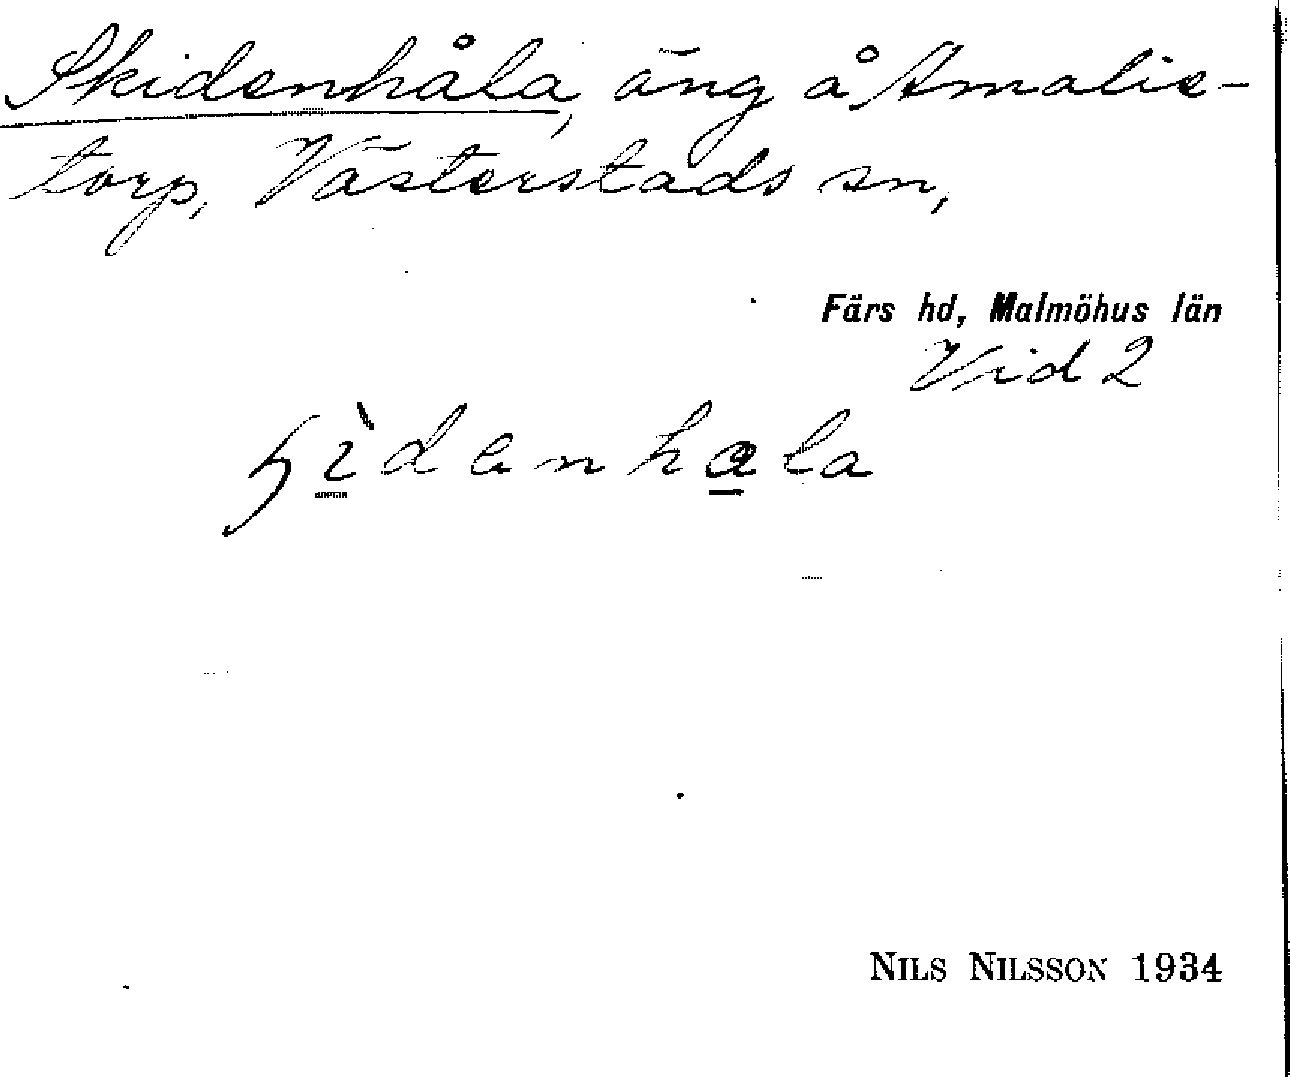 Skidenhåla, äng å Amalie-
torp, Västerstads sn,
Färs hd, Malmöhus län
Vid 2
ʃìdenhala
NILS NILSSON 1934